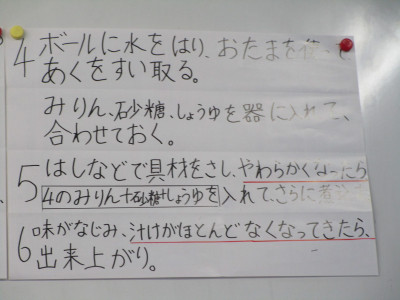 4 ボールに水をはり、おたまを使って
あくをすい取る。
みりん、砂糖、しょうゆを器に入れて、
合わせておく。
5 はしなどで具材をさし、やわらかくなったら
4のみりん+砂糖+しょうゆを入れて、さらに煮
6 味がなじみ、汁けがほとんどなくなってきたら、
出来上がり。